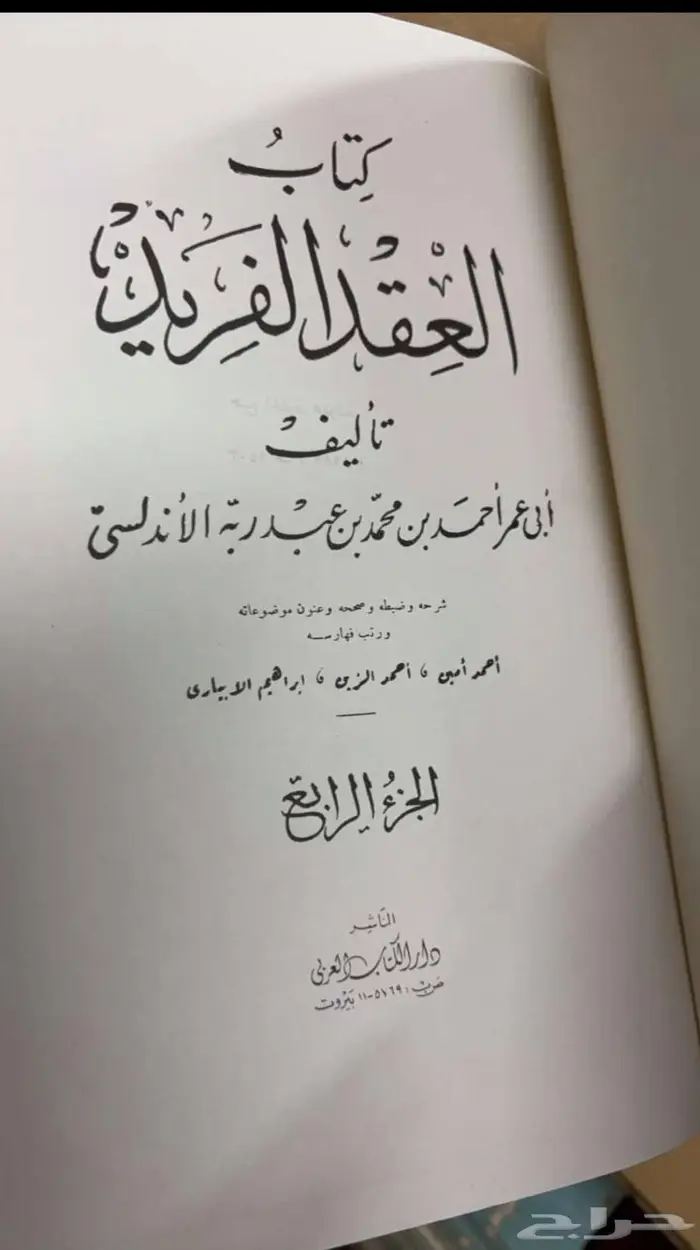 كِتابُ
العِقْد الفَرِيْد
تأليفْ
أبى عمر أحمَد بن محمّد بن عبْد ربّه الأندلسىّ
شرحه وضبطه وصححه وعنون موضوعاته
ورتب فهارسه
أحمد أمين ، أحمد الزين ، ابراهيم الابيارى
الجزءُ الرابعُ
النَاشِر
دار الكتاب العربي
صَ بْ : ٥٧٦٩-١١ بَيْروت
حراج